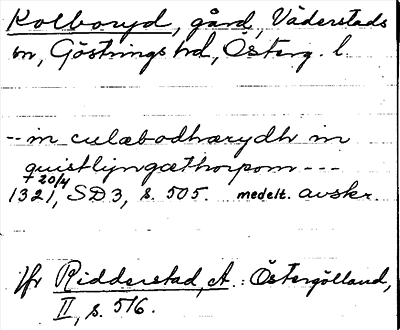 Kolboryd, gård, Väderstads
sn, Göstrings hd, Österg. l.
-- in culæbodhærydh in
quistlijngæthorpom ---
1321 20/4, SD 3, s. 505. medelt. avskr.
Jfr Ridderstad, A. : Östergötland,
II, s. 516.